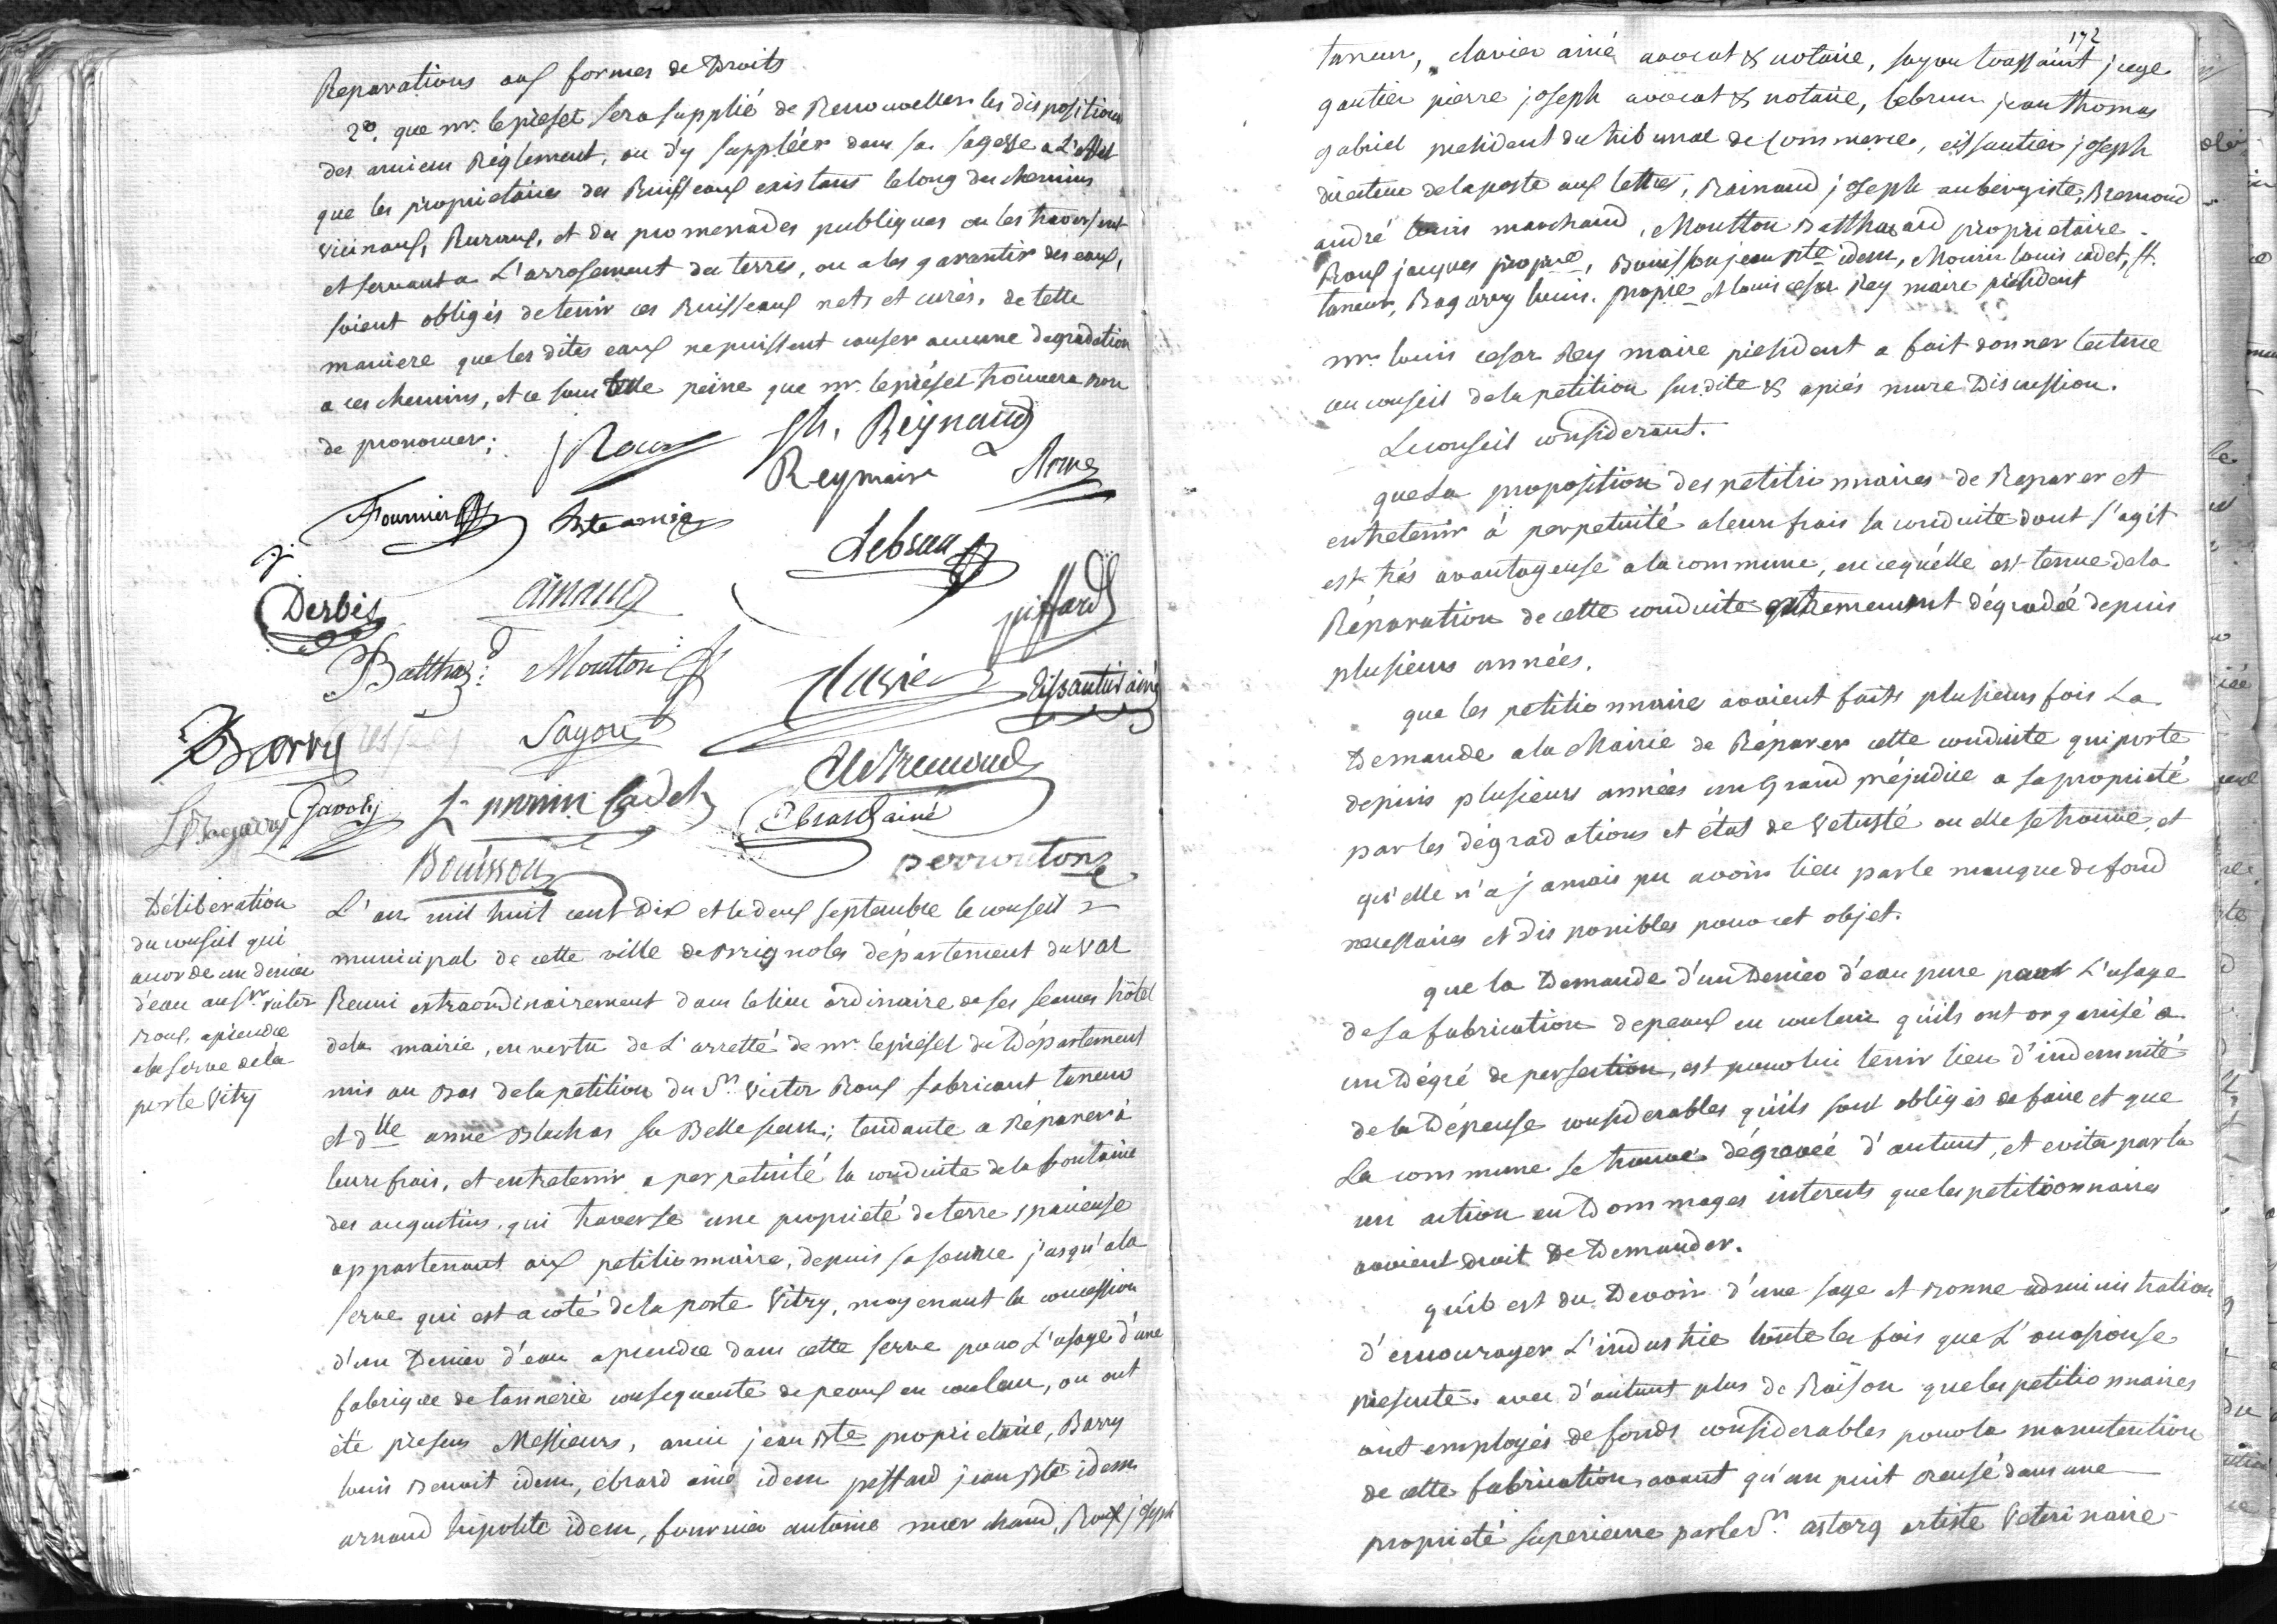 Reparations aux formes de Droits
2º. que mr. le préfet sera supplié de Renouveller les dispositions
des anciens Réglement, ou d'y suppléer dans sa sagesse a L'effet
que les proprietaires des Ruisseaux existans le long des chemins
vicinaux, Ruraux, et des promenades publiques ou les traversent
et servant a L'arrosement des terres, ou a les garantir des eaux,
soient obligés de tenir ces Ruisseaux nets et curés, de telle
maniere que les dites eaux ne puissent causer aucune degradation
a ces chemins, et ce sous telle peine que mr. le préfet trouvera bon
de prononcer;
J Roux Jh. Reynaud
Rey maire
Fournier
Lebrun
Derbés
arnaud
piffard
Balthazd. Moutton
Clavier
Eissautier ainé
Barry
Sayou
Ls. morin Cadet
Ebrard ainé
L Bagarry
Bouisson
Déliberation
du conseil qui
accorde un denier
d'eau au sr. victor
roux, aprendre
a la serve de la
porte Vitry
L'an mil huit cent dix et le deux septembre le conseil
municipal de cette ville de brignoles département du var
Reuni extraordinairement dans le lieu ordinaire de ses seances hôtel
de la mairie, en vertu de L'arretté de mr. le préfet du Département
mis au bas de la petition du Sr. Victor Roux fabricant taneur
et dlle anne Blachas sa Belle soeur; tendante a Réparer à
leurs frais, et entretenir a perpetuité la conduite de la fontaine
des augustins, qui traverse une proprieté de terre spacieuse
appartenant aux petitionnaire, depuis sa source jusqu'a la
serve qui est a coté de la porte Vitry, moyenant la concession
d'un Denier d'eau aprendre dans cette serve pour L'usage d'une
fabrique de tannerie consequente de peaux en couleur, ou ont
été presens Messieurs, amic jean bte proprietaire, Barry
louis benoit idem, ebrard ainé idem piffard jean bte idem
arnaud hipolite idem, fournier antoine marchand, Roux joseph
172
taneur, clavier ainé avocat & notaire, sayou toussaint juge
gautier pierre joseph avocat & notaire, lebrun jean thomas
gabriel president du tribunal de commerce, eissautier joseph
directeur de la poste aux lettres, Rainaud joseph aubergiste, Bremond
andré louis marchand, Moutton Balthazard proprietaire.
Roux jacques propre, Bouisson jean bte idem, Morin louis cadet, ft.
taneur, Bagarry louis. propre et louis cesar Rey maire président
mr. louis cesar Rey maire président a fait donner lecture
au conseil de la petition susdite & aprés mure Discussion.
Le conseil considerant.
que La proposition des petitionnaires de Reparer et
entretenir à perpetuité a leurs frais la conduite dont s'agit
est trés avantageuse a la commune, en ce qu'elle est tenue de la
Réparation de cette conduite extremement dégradée depuis
plusieurs années.
que les petitionnaire avoient faits plusieurs fois La
Demande a la Mairie de Réparer cette conduite qui porte
depuis plusieurs années un Grand préjudice a sa proprieté
par les dégradations et état de vetusté ou elle se trouve, et
qu'elle n'a jamais pu avoir lieu par le manque de fond
necessaires et disponibles pour cet objet.
que la Demande d'un Denier d'eau pure pour L'usage
de sa fabrication de peaux en couleur qu'ils ont organisé a
un dégré de perfection, est pour lui tenir lieu d'indemnité
de la Dépense considerables qu'ils sont obligés de faire et que
La commune se trouve dégrevée d'autant, et evite par là
un action en Dommages interests que les petitionnaires
avoient droit de Demander.
qu'il est du Devoir d'une sage et bonne administration
d'encourager L'industrie toute les fois que L'occasion se
présente. avec d'autant plus de Raison que les petitionnaires
ont employés de fonds considerables pour la manutention
de cette fabrication avant qu'un puit creusé dans une
proprieté superieure par le sr. astorg artiste Veterinaire